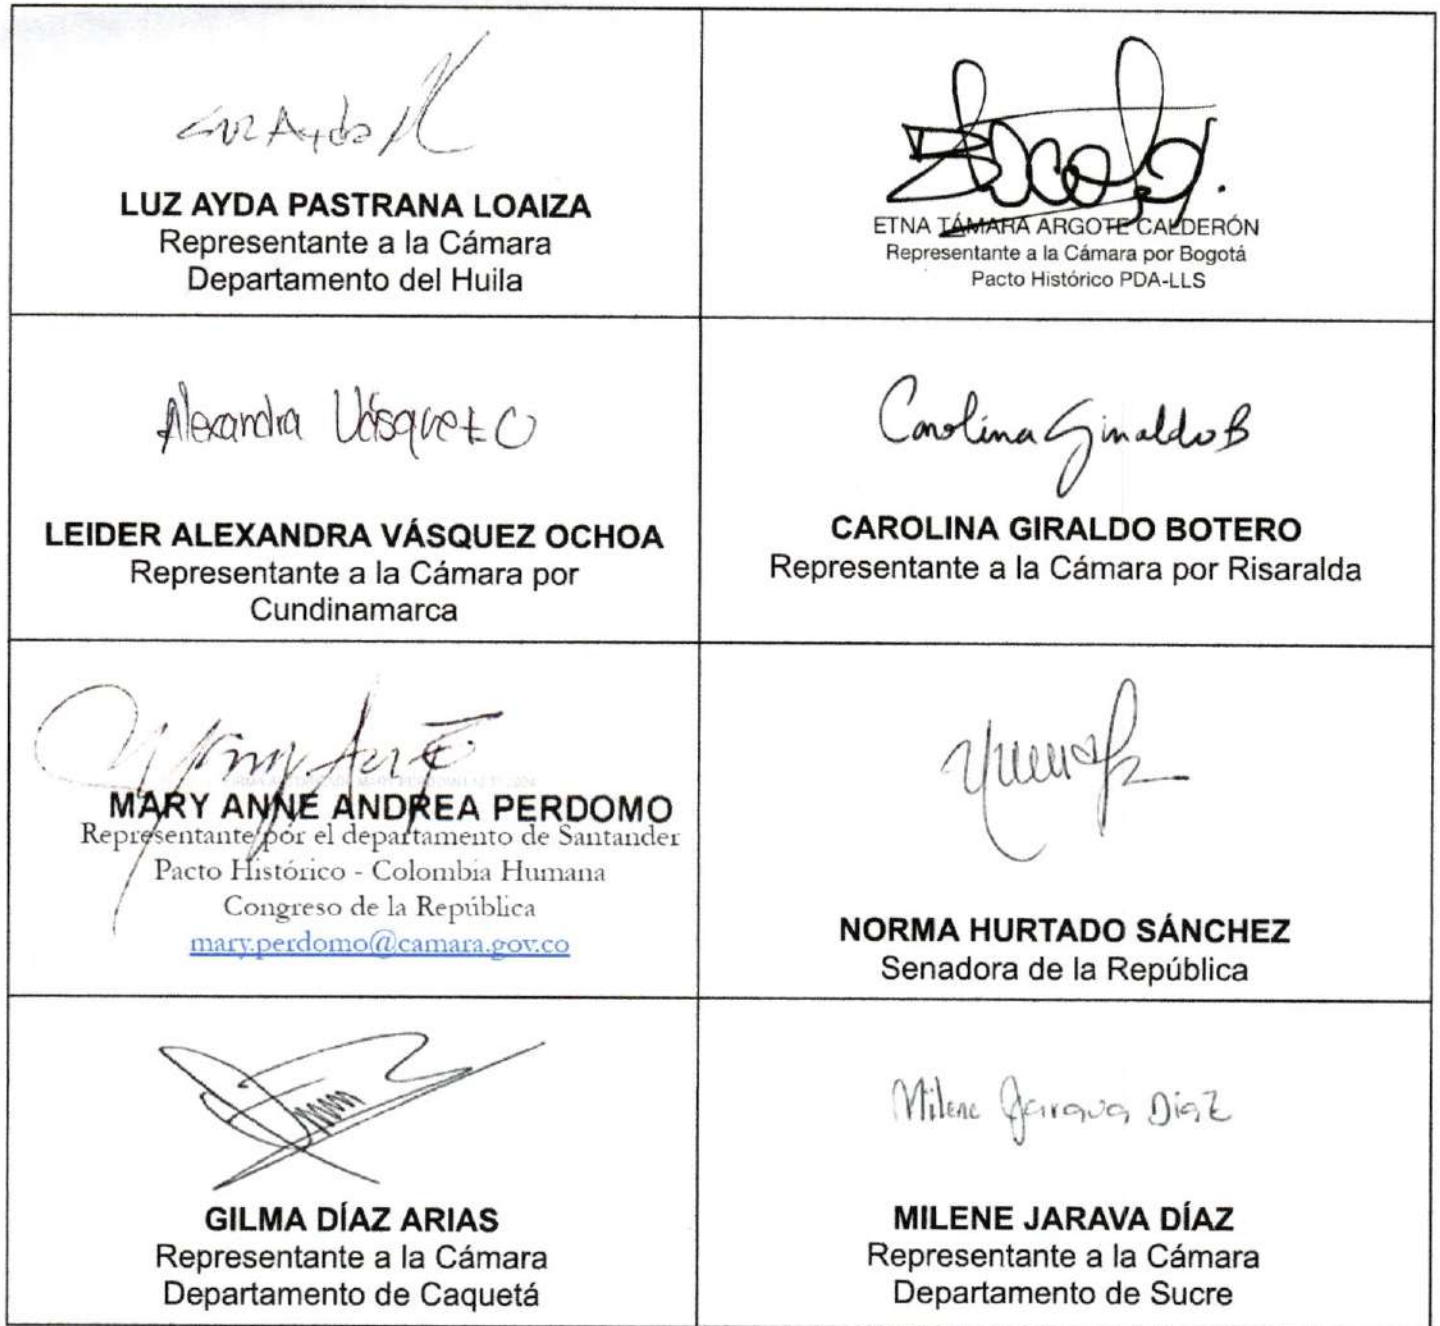 Luz Ayda P
LUZ AYDA PASTRANA LOAIZA
Representante a la Cámara
Departamento del Huila
ETNA TÁMARA ARGOTE CALDERÓN
Representante a la Cámara por Bogotá
Pacto Histórico PDA-LLS
Alexandra Vásquez O
LEIDER ALEXANDRA VÁSQUEZ OCHOA
Representante a la Cámara por
Cundinamarca
Carolina Giraldo B
CAROLINA GIRALDO BOTERO
Representante a la Cámara por Risaralda
MARY ANNE ANDREA PERDOMO
Representante por el departamento de Santander
Pacto Histórico - Colombia Humana
Congreso de la República
mary.perdomo@camara.gov.co
NORMA HURTADO SÁNCHEZ
Senadora de la República
GILMA DÍAZ ARIAS
Representante a la Cámara
Departamento de Caquetá
Milene Jarava Diaz
MILENE JARAVA DÍAZ
Representante a la Cámara
Departamento de Sucre